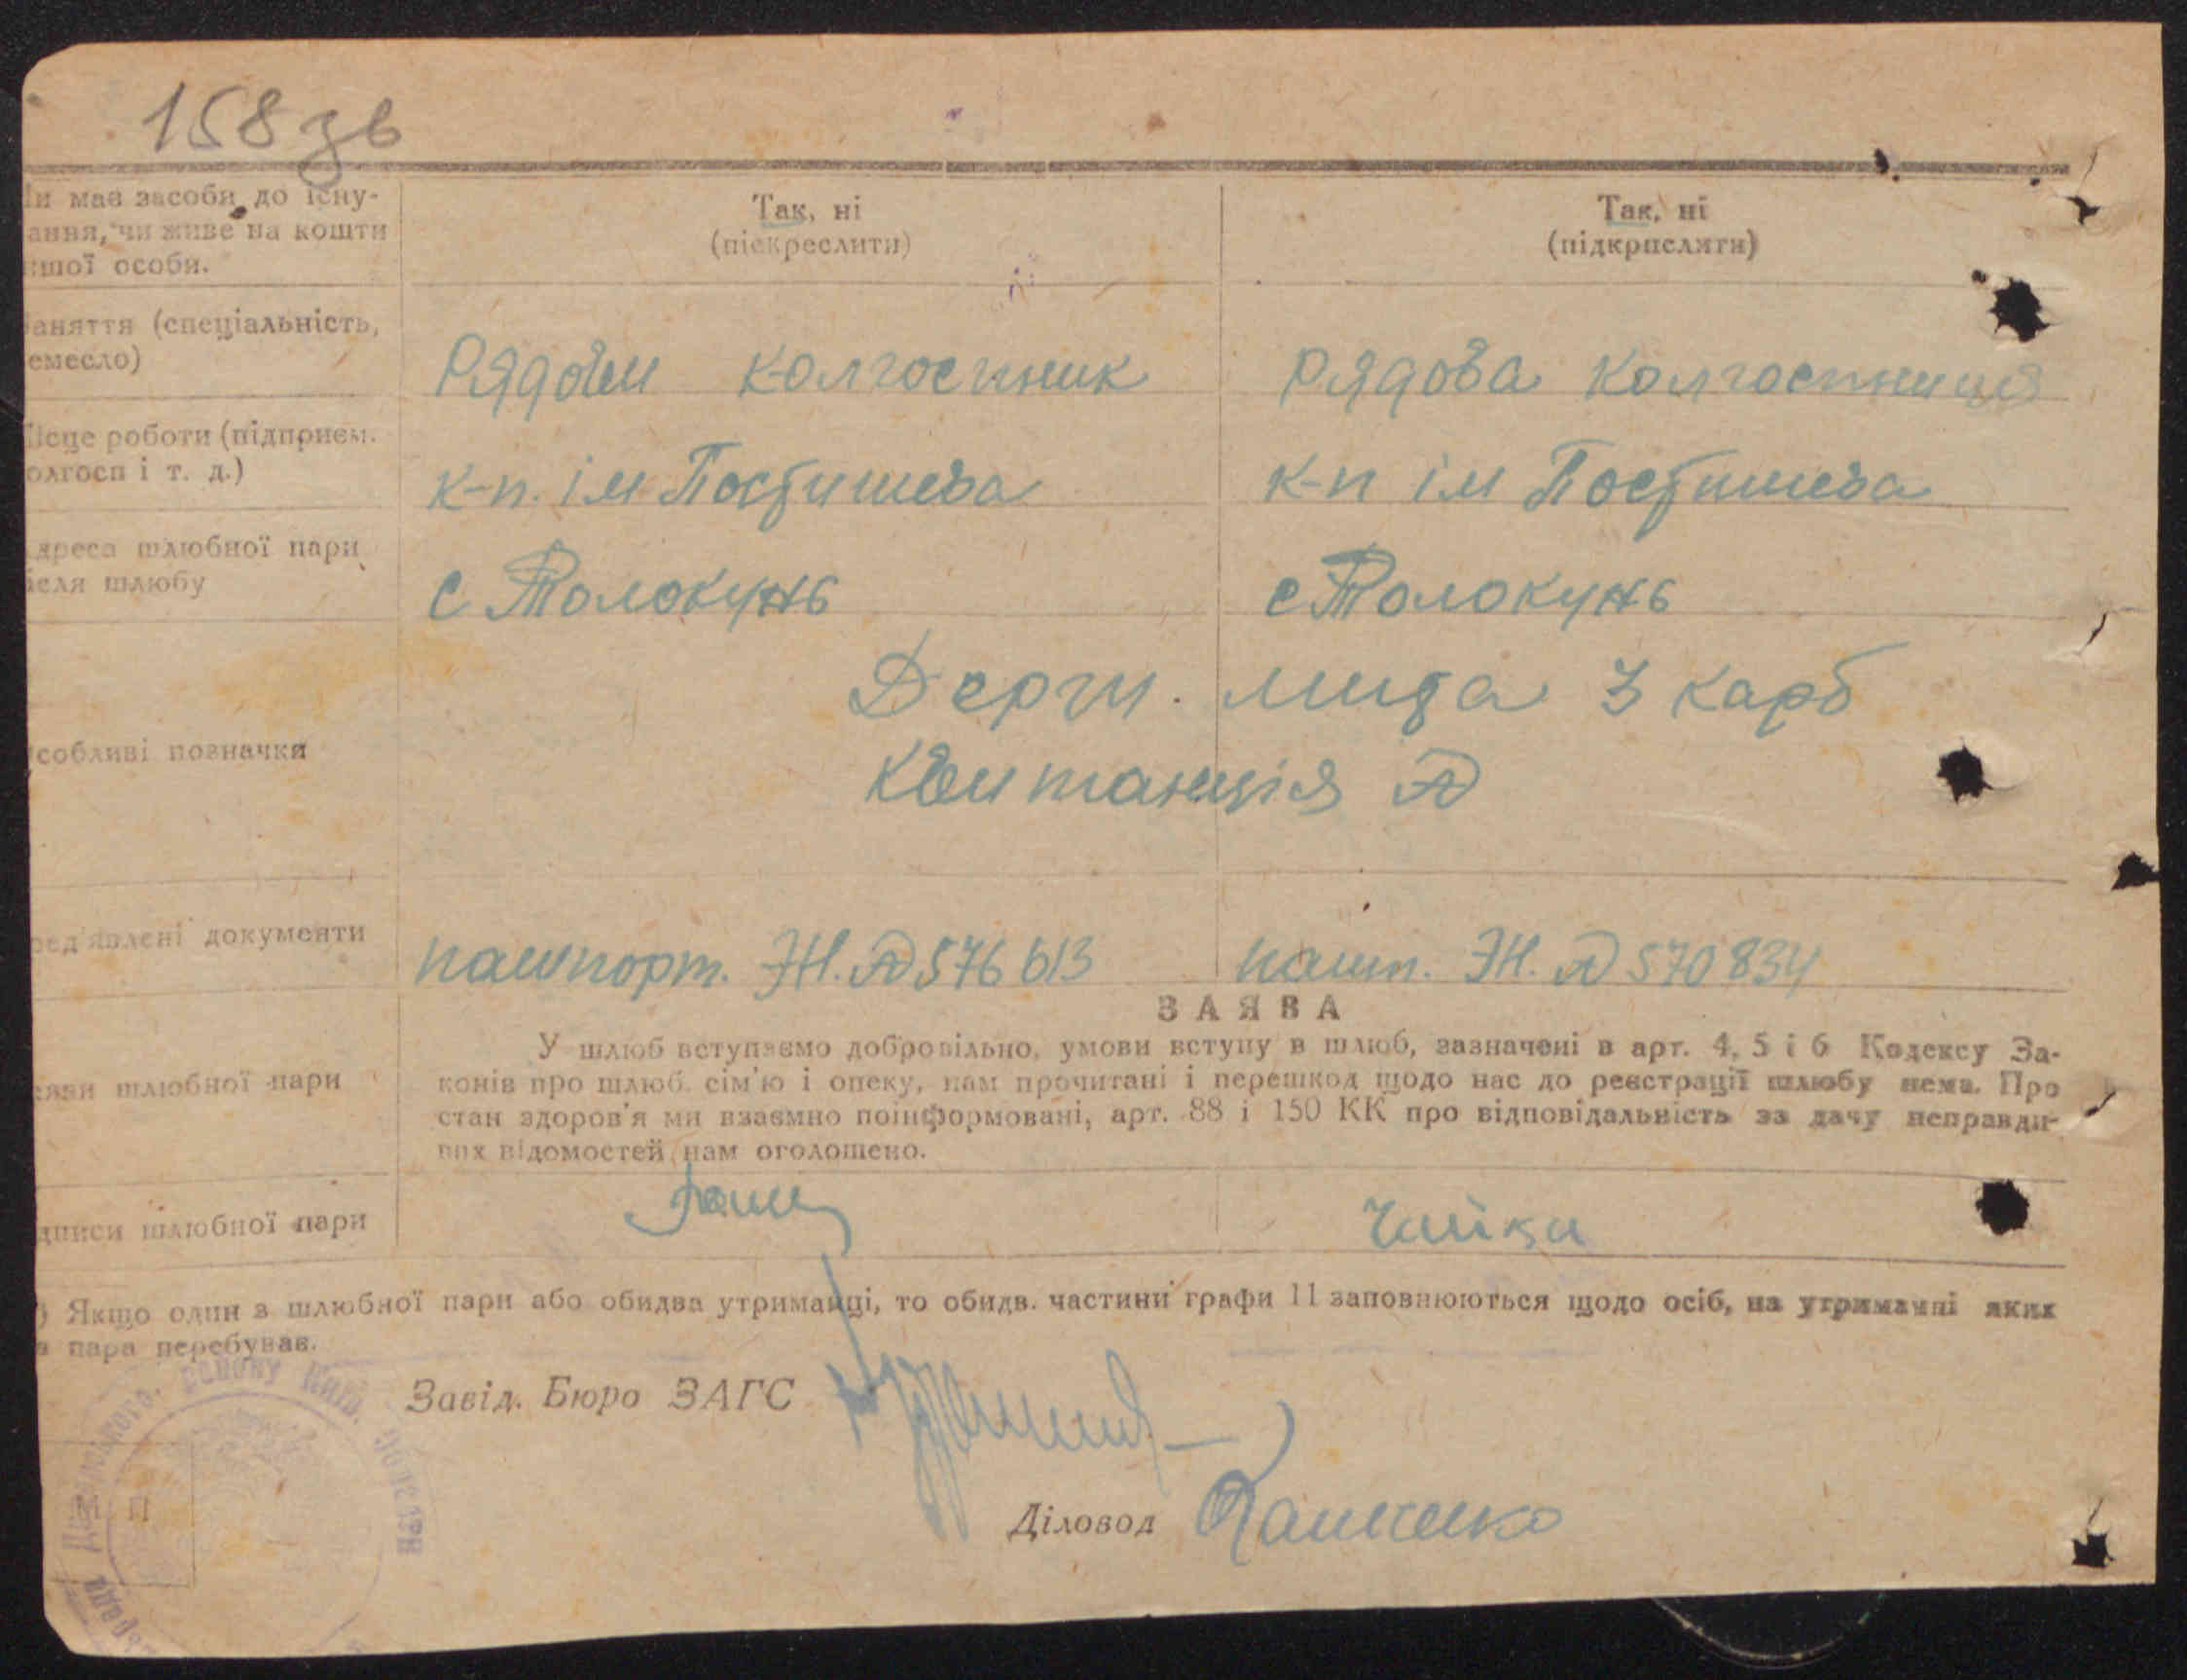 158 зв
и має засоби до існу-
ання, чи живе на кошти
ншої особи.
Так, ні
(піекреслити)
Так, ні
(підкрислити)
аняття (спеціальність,
емесло)
Рядовий колгоспник
рядова колгоспниця
ісце роботи (підприєм.
олгосп і т. д.)
к-п. ім Постишева
к-п ім Постишева
дреса шлюбної пари
ісля шлюбу
с Толокунь
с Толокунь
собливі позначки
Держ. мита 3 карб
Квитанція №
ред'явлені документи
пашпорт. ЖН. № 576613
пашп. ЖН. № 570834
ЗАЯВА
аяви шлюбної пари
У шлюб вступаємо добровільно, умови вступу в шлюб, зазначені в арт. 4, 5 і 6 Кодексу За-
конів про шлюб сім'ю і опеку, нам прочитані і перешкод щодо нас до реєстрації шлюбу нема. Про
стан здоров'я ми взаємно поінформовані, арт. 88 і 150 КК про відповідальність за дачу неправди-
вих відомостей нам оголошено.
дписи шлюбної пари
Чайка
) Якщо один з шлюбної пари або обидва утриманці, то обидв. частини графи 11 заповнюються щодо осіб, на утриманні яких
а пара перебуває.
Завід. Бюро ЗАГС
Діловод
району Київ. області